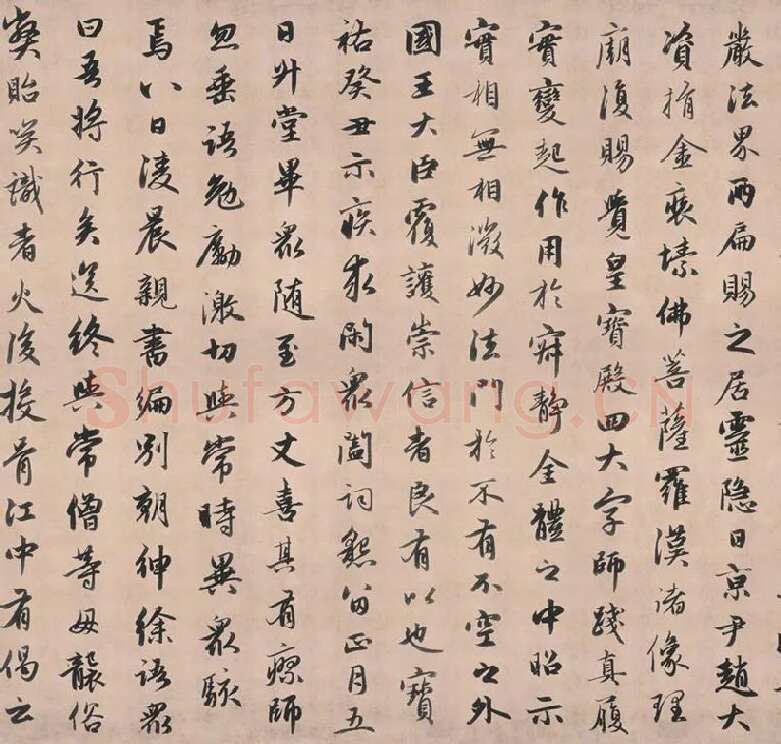 嚴法界兩扁賜之居靈隱日京尹趙大
資捐金裝塐佛菩薩羅漢諸像理
廟復賜覺皇寶殿四大字師踐真履
實變起作用於寂靜全體之中昭示
實相無相微妙法門於不有不空之外
國王大臣覆護崇信者良有以也寶
祐癸丑示疾求閑眾闔詞懇留正月五
日升堂畢眾隨至方丈喜其有瘳師
忽垂語勉勵激切與常時異眾駭
焉八日淩晨親書徧別朝紳徐語眾
曰吾將行矣送終與常僧等毋襲俗
獘貽笑識者火後投骨江中有偈云
Shufawang.CN